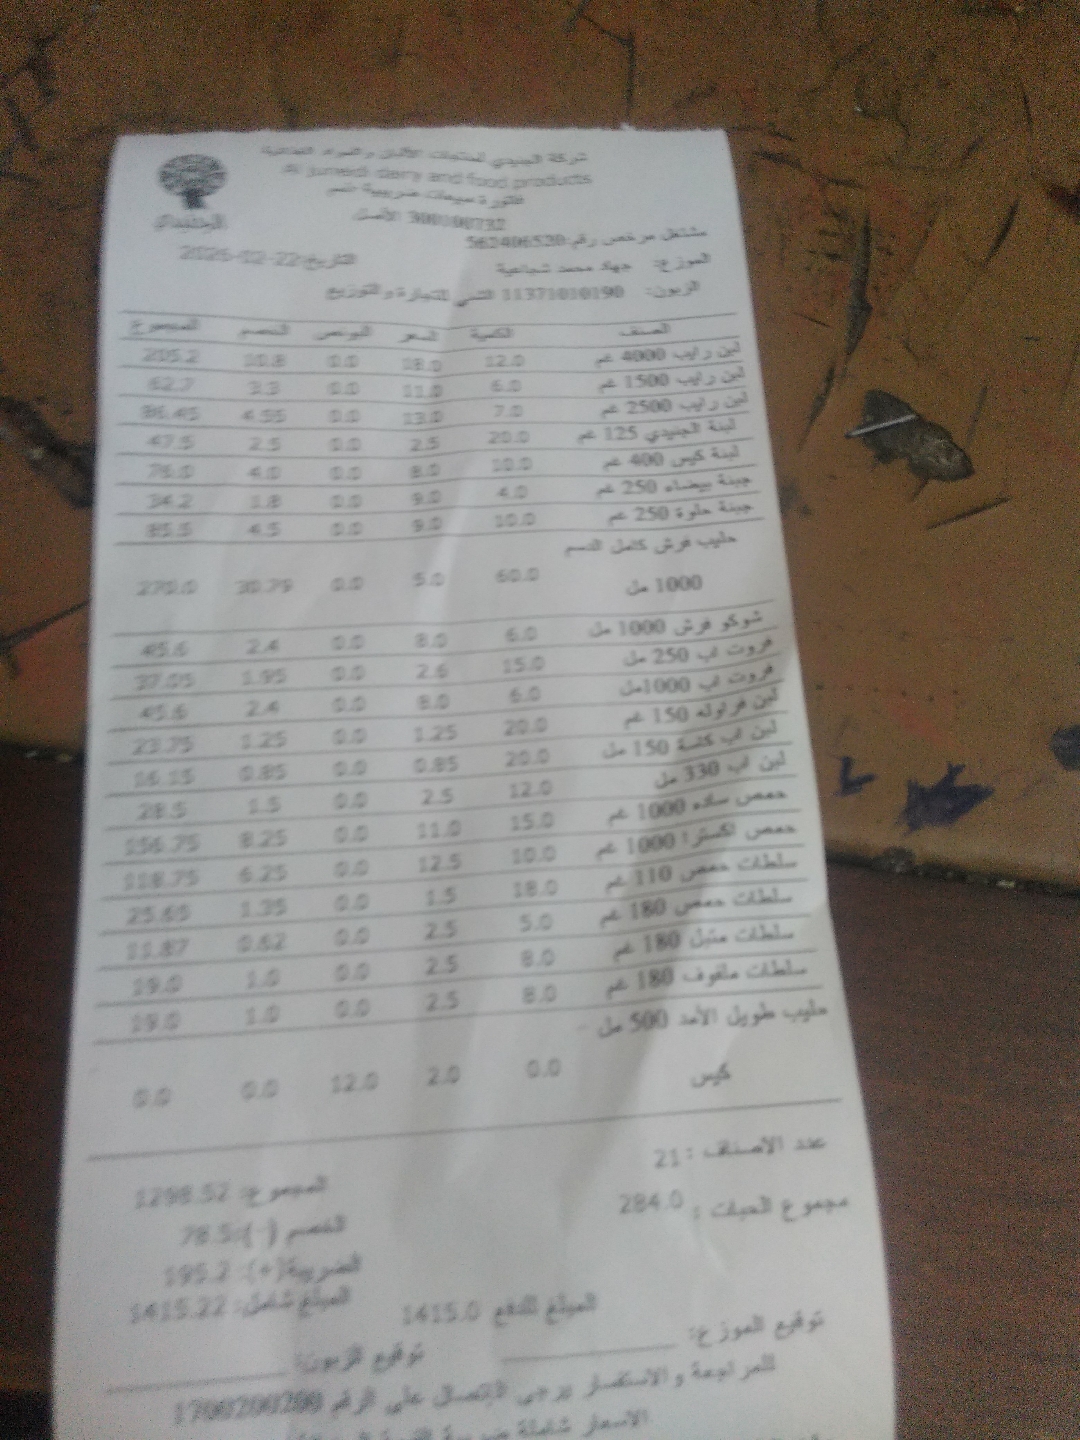 شركة الجنيدي لمنتجات الألبان والمواد الغذائية
Al juneidi dairy and food products
فاتورة مبيعات ضريبية
300100732 الأصل
مشتغل مرخص رقم:562406520
الجنيدي
الموزع: جهاد محمد شجاعية التاريخ:2026-02-22
الزبون: 11371010190 للتجارة والتوزيع
الصنف الكمية السعر البونص الخصم المجموع
لبن رايب 4000 غم 12.0 18.0 0.0 10.8 205.2
لبن رايب 1500 غم 6.0 11.0 0.0 3.3 62.7
لبن رايب 2500 غم 7.0 13.0 0.0 4.55 86.45
لبنة الجنيدي 125 غم 20.0 2.5 0.0 2.5 47.5
لبنة كيس 400 غم 10.0 8.0 0.0 4.0 76.0
جبنة بيضاء 250 غم 4.0 9.0 0.0 1.8 34.2
جبنة حلوة 250 غم 10.0 9.0 0.0 4.5 85.5
حليب فرش كامل الدسم
1000 مل 60.0 5.0 0.0 30.79 270.0
شوكو فرش 1000 مل 6.0 8.0 0.0 2.4 45.6
فروت اب 250 مل 15.0 2.6 0.0 1.95 37.05
فروت اب 1000مل 6.0 8.0 0.0 2.4 45.6
لبن فراوله 150 غم 20.0 1.25 0.0 1.25 23.75
لبن اب كاسة 150 مل 20.0 0.85 0.0 0.85 16.15
لبن اب 330 مل 12.0 2.5 0.0 1.5 28.5
حمص ساده 1000 غم 15.0 11.0 0.0 8.25 156.75
حمص اكسترا 1000 غم 10.0 12.5 0.0 6.25 118.75
سلطات حمص 110 غم 18.0 1.5 0.0 1.35 25.65
سلطات حمص 180 غم 5.0 2.5 0.0 0.62 11.87
سلطات متبل 180 غم 8.0 2.5 0.0 1.0 19.0
سلطات ملفوف 180 غم 8.0 2.5 0.0 1.0 19.0
حليب طويل الأمد 500 مل -
كيس 0.0 2.0 12.0 0.0 0.0
عدد الأصناف : 21
المجموع: 1298.52
مجموع الحبات : 284.0
الخصم (-):78.5
الضريبة(+): 195.2
المبلغ شامل: 1415.22
المبلغ للدفع 1415.0
توقيع الموزع:
توقيع الزبون:
للمراجعة والاستفسار يرجى الإتصال على الرقم 1700200200
الاسعار شاملة ضريبة